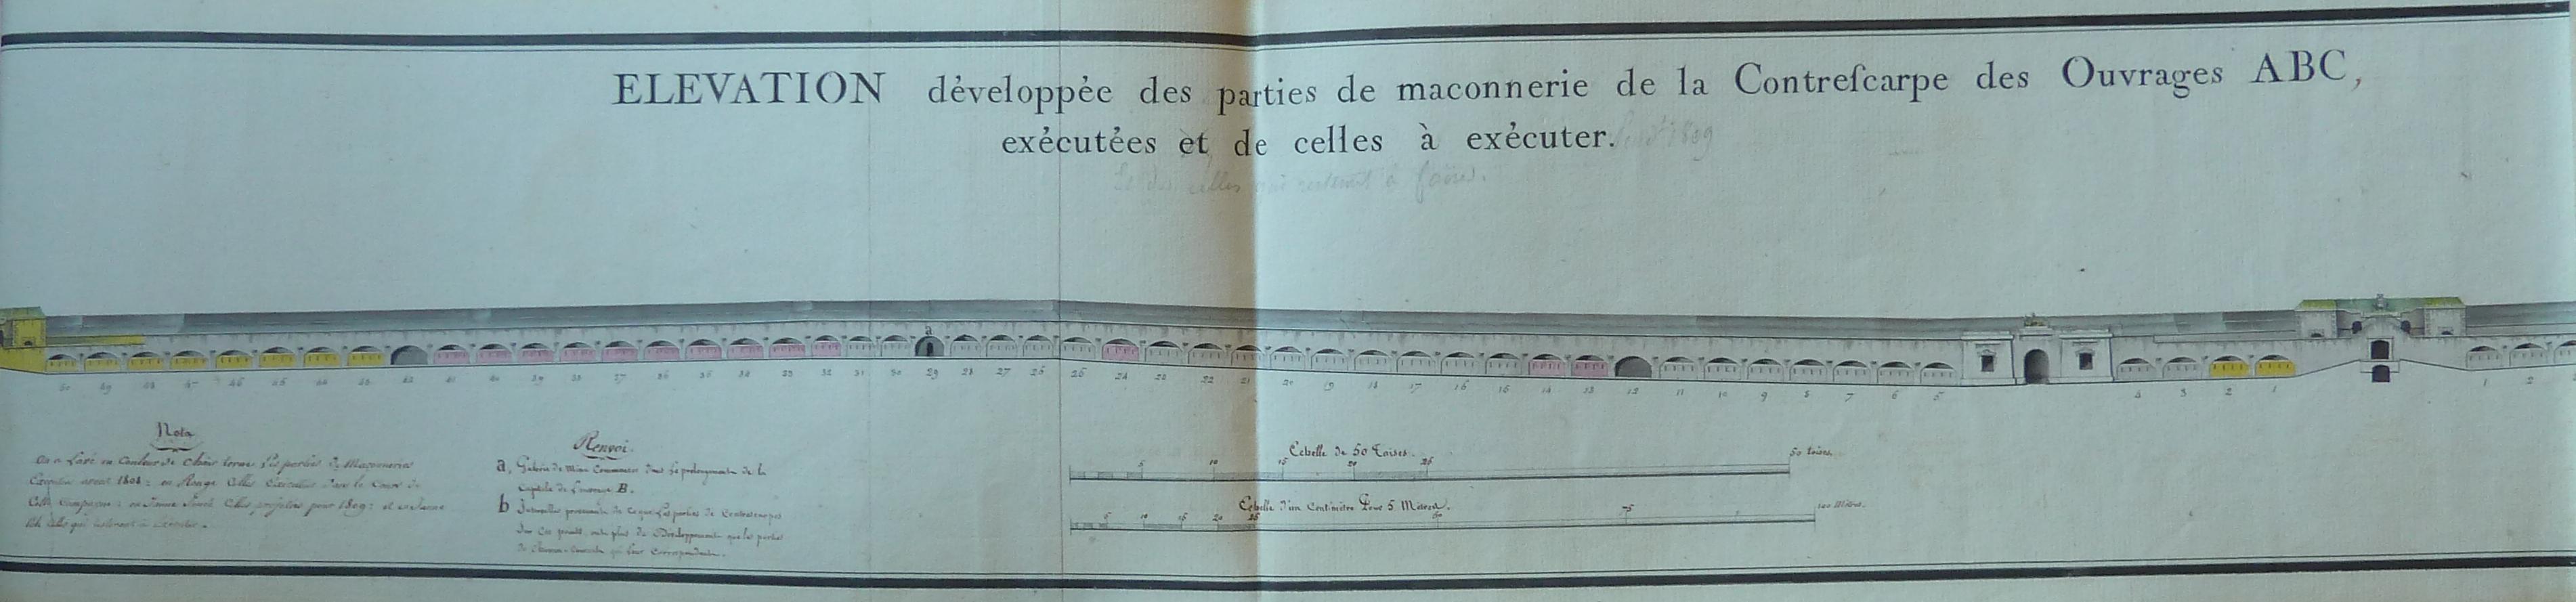 ELEVATION dévelоppée des parties de maconnerie de la Contreſcarpe des Ouvrages ABC,
exécutées et de celles à exécuter. 1809
Et des celles qui resteront à faire.
a
50 49 48 47 46 45 44 43 42 41 40 39 38 37 36 35 34 33 32 31 30 29 28 27 26 25 24 23 22 21 20 19 18 17 16 15 14 13 12 11 10 9 8 7 6 5 4 3 2 1 1 2
Nota
On a Lavé en Couleur de Chair terne Les parties de Maçonneries
Exécutées avant 1808: en Rouge Celles Exécutées dans le Cours de
Cette Campagne: en Jaune foncé Celles projettées pour 1809: et en Jaune
Celles qui resteront à Exécuter.
Renvoi.
a, Galerie de Mine Commencée dans Le prolongement de la
Capitale de L'ouvrage B.
b Intervalles provenants de ce que Les parties de Contrescarpes
Sur Ces points, ont plus de Développement que les parties
de qui Leur Correspondent.
Echelle de 50 Toises.
5 10 15 20 25 50 toises.
Echelle d'un Centimètre Pour 5 Mètres.
5 10 15 20 25 50 75 100 Mètres.